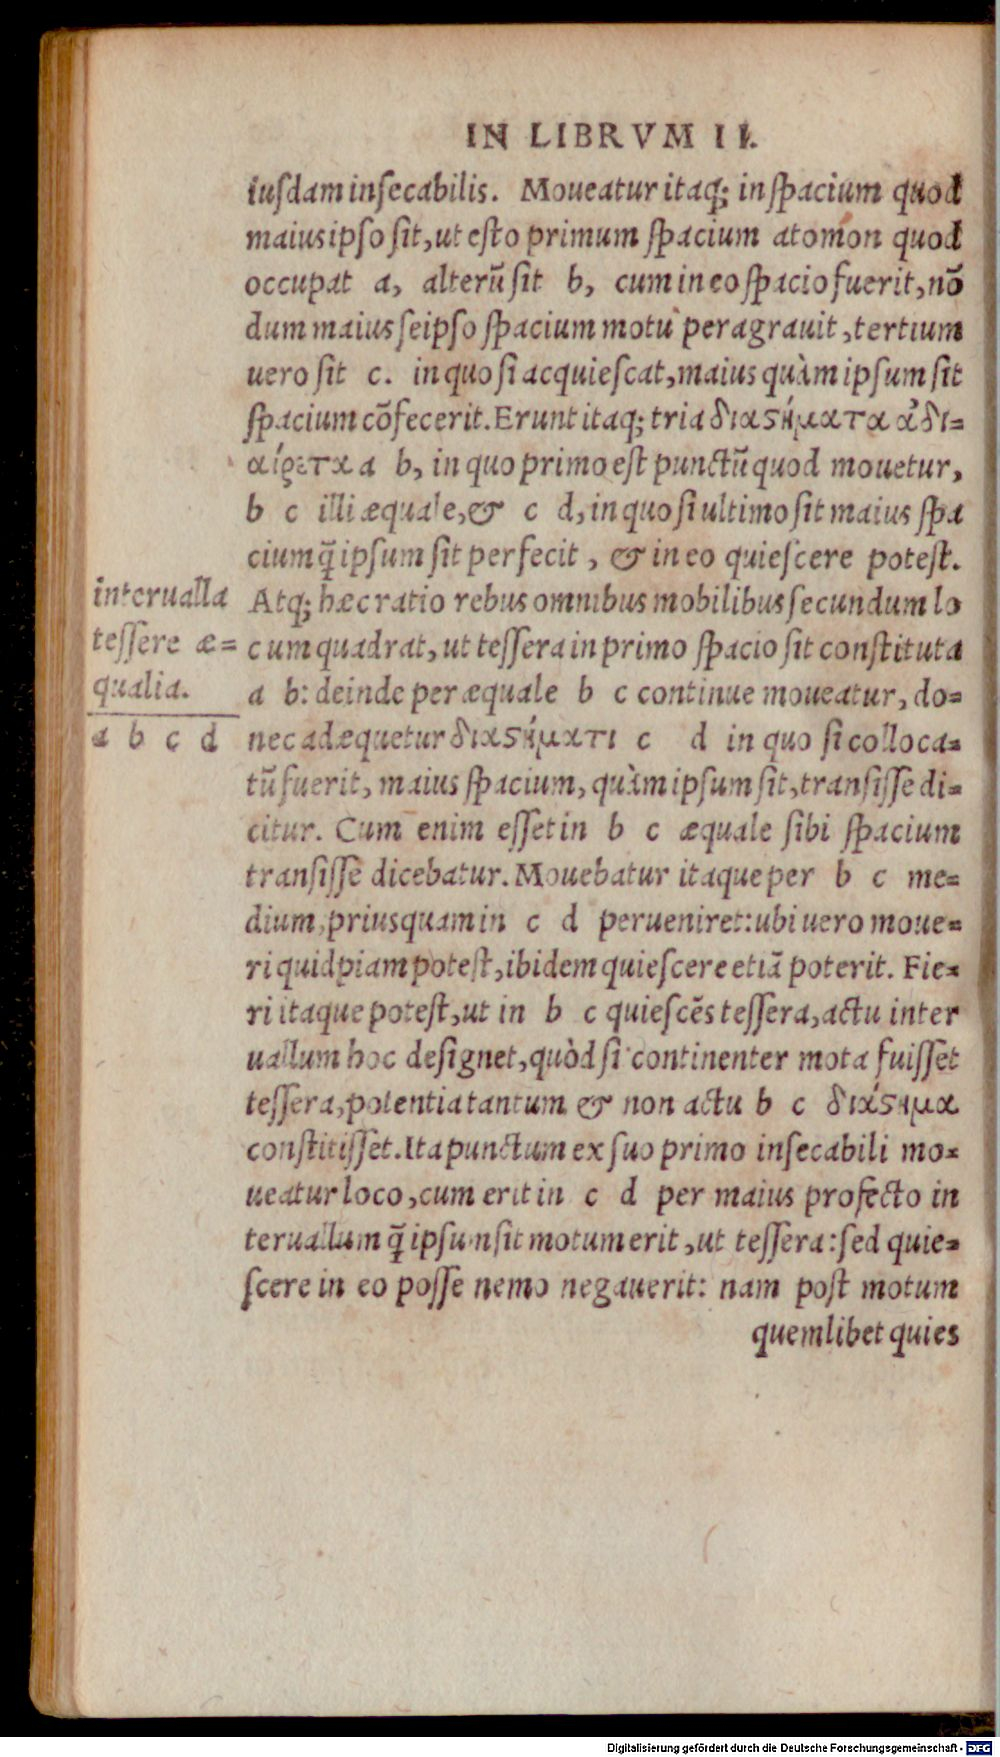 IN LIBRVM II.
iusdam insecabilis. Moueatur itaq; in spacium quod
maius ipso sit, ut esto primum spacium atomon quod
occupat a, alterũ sit b, cum in eo spacio fuerit, nõ
dum maius seipso spacium motu peragrauit, tertium
uero sit c. in quo si acquiescat, maius quàm ipsum sit
spacium cõfecerit. Erunt itaq; tria διαςήματα ἀδι-
αίρετα a b, in quo primo est punctũ quod mouetur,
b c illi æquale, & c d, in quo si ultimo sit maius spa
cium q̃ ipsum sit perfecit, & in eo quiescere potest.
Atq; hæc ratio rebus omnibus mobilibus secundum lo
cum quadrat, ut tessera in primo spacio sit constituta
a b: deinde per æquale b c continue moueatur, do-
nec adæquetur διαςήματι c d in quo si colloca-
tũ fuerit, maius spacium, quàm ipsum sit, transisse di-
citur. Cum enim esset in b c æquale sibi spacium
transisse dicebatur. Mouebatur itaque per b c me-
dium, priusquam in c d perueniret: ubi uero moue-
ri quidpiam potest, ibidem quiescere etiã poterit. Fie-
ri itaque potest, ut in b c quiescẽs tessera, actu inter
uallum hoc designet, quòd si continenter mota fuisset
tessera, potentia tantum & non actu b c διάςημα
constitisset. Ita punctum ex suo primo insecabili mo-
ueatur loco, cum erit in c d per maius profecto in
teruallum q̃ ipsum sit motum erit, ut tessera: sed quie-
scere in eo posse nemo negauerit: nam post motum
quemlibet quies
interualla
tessere æ-
qualia.
a b c d
Digitalisierung gefördert durch die Deutsche Forschungsgemeinschaft - DFG